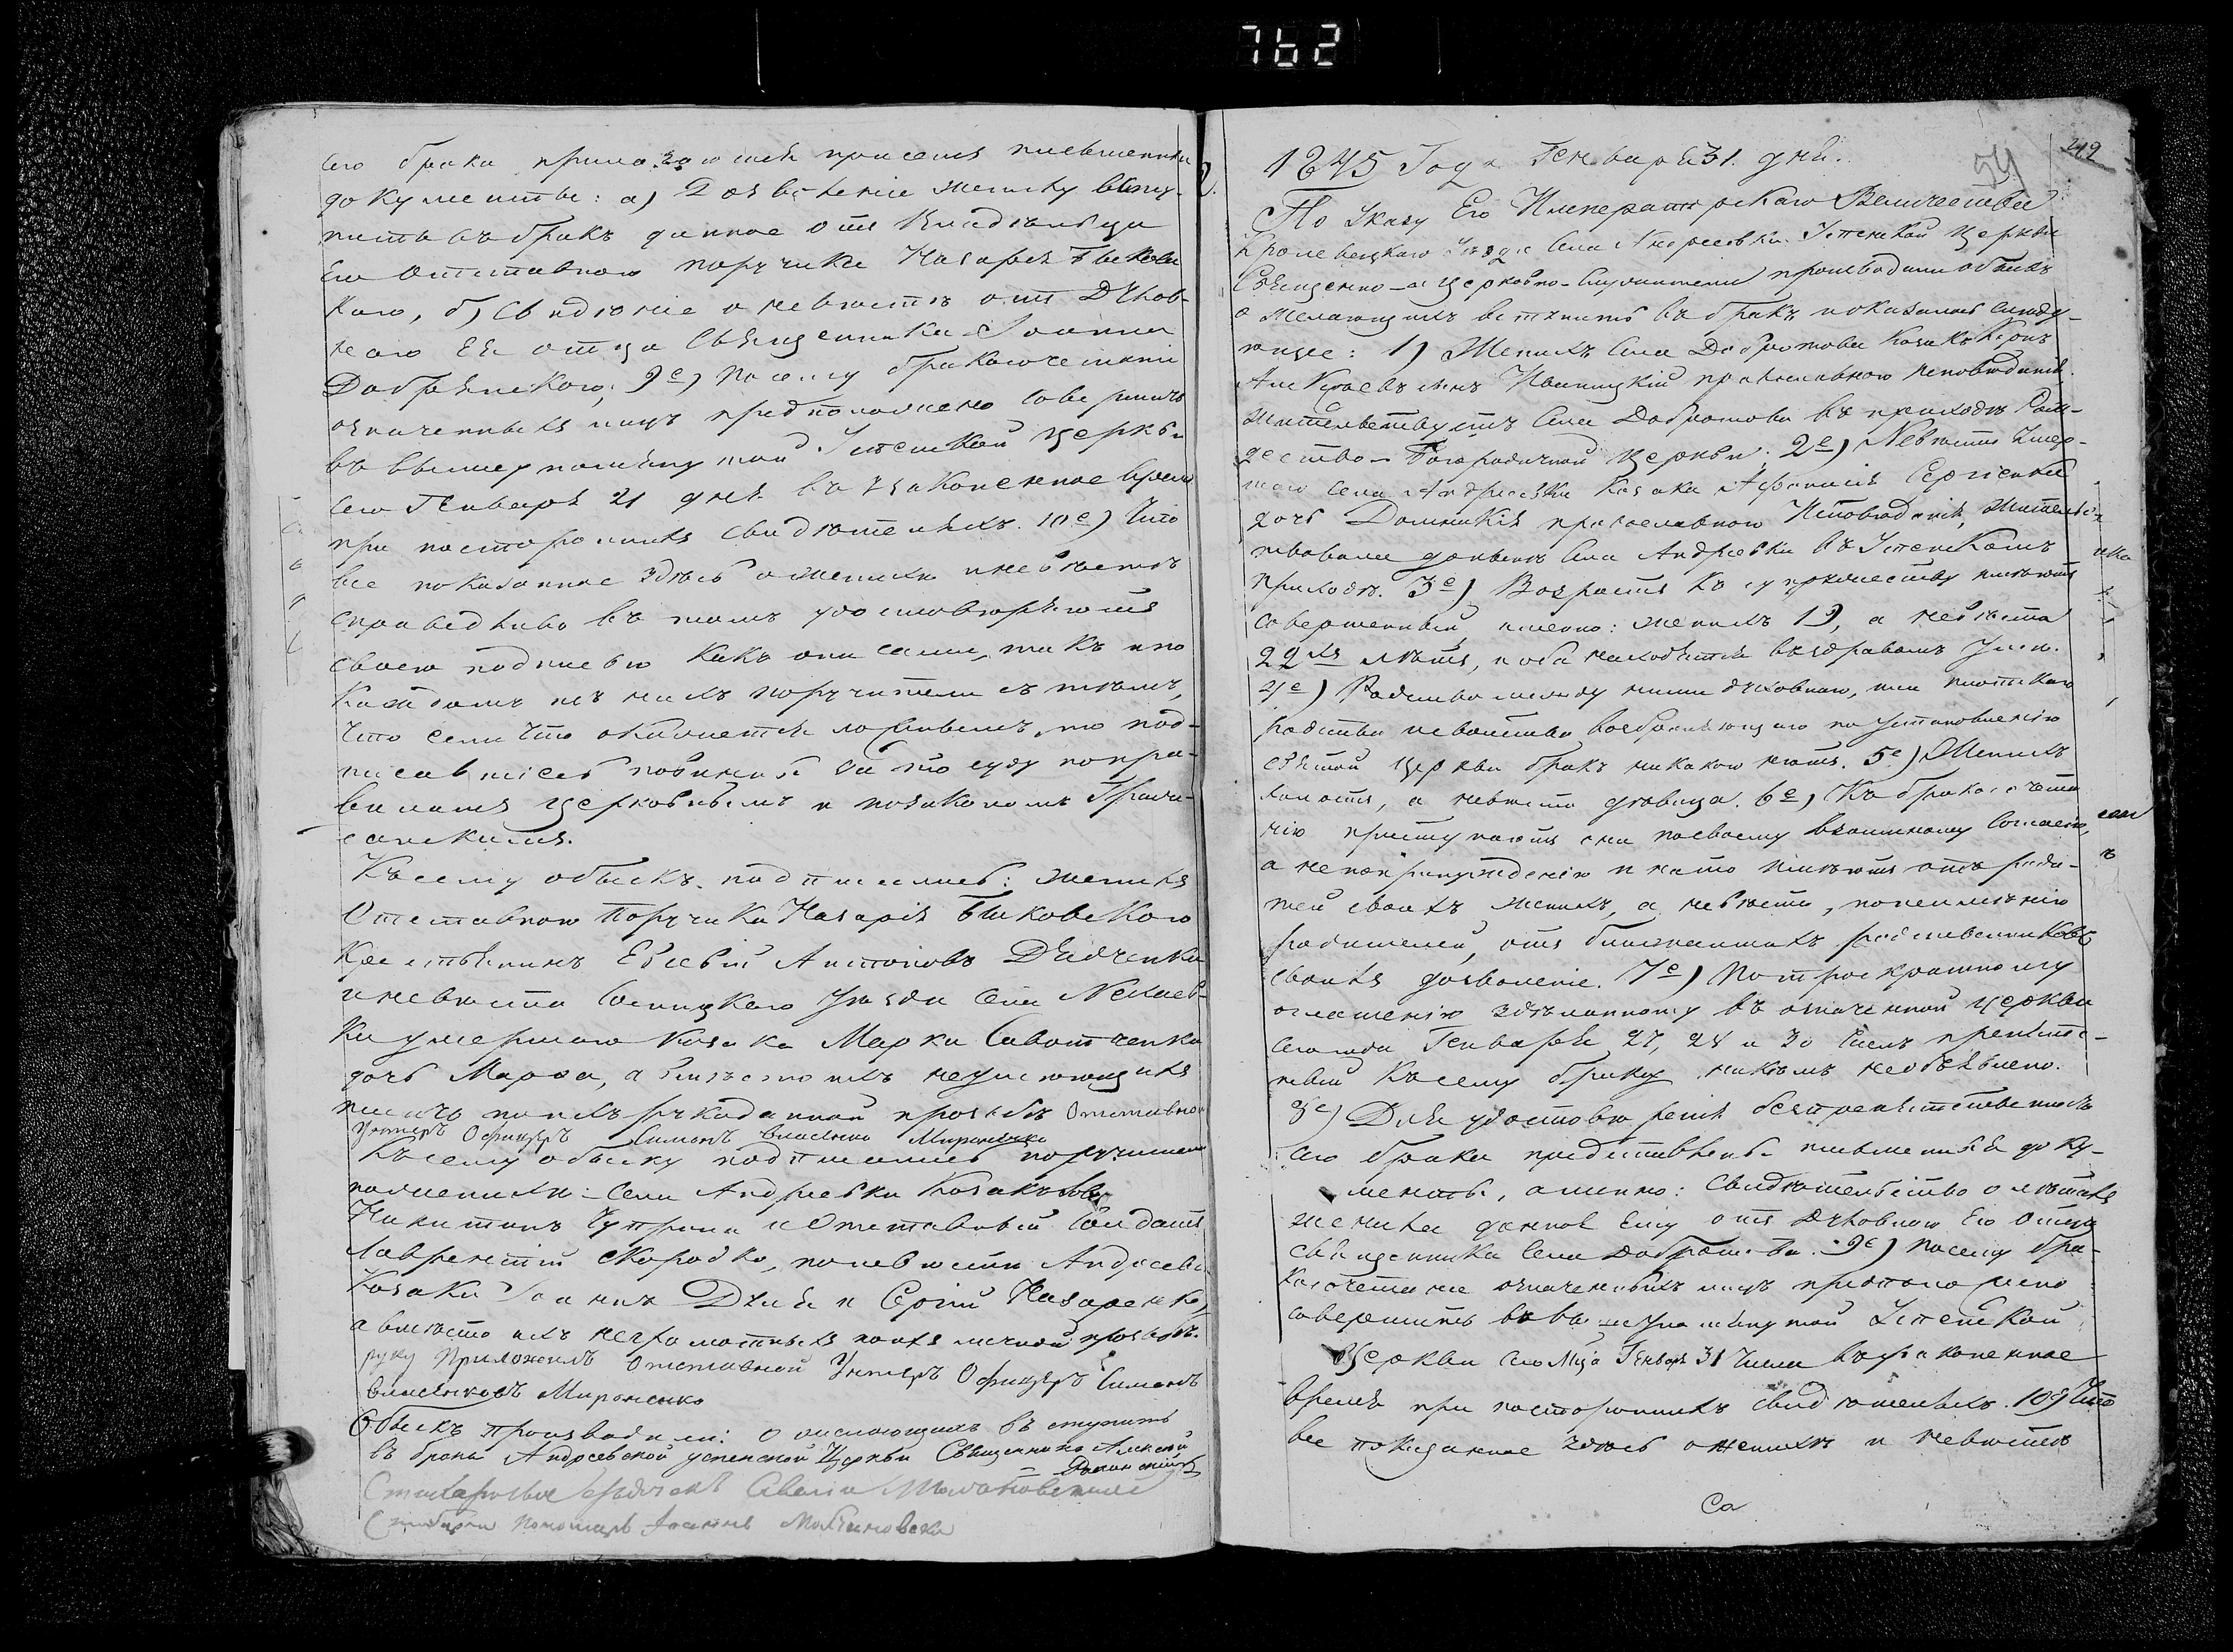 762
сего брака прилагаются при семъ письменны
документы: а) Дозволеніе жениху всту-
пить въ бракъ данное отъ Владѣльца
его отставного поручика Назарія Быковс
каго, б) свидѣніе о невѣстѣ отъ Духов-
наго Ея отца Священника Іоанна
Добрянскаго; 9е) Посему бракосочетаніе
означенныхъ лицъ предположено совершить
въ вышеупомянутой Успенской церкви
сего Генваря 21 дня въ узаконенное время
при постороннихъ свидѣтеляхъ. 10е) Что
все показанное здѣсь о женихѣ и невѣстѣ
справедливо въ томъ удостовѣряютъ
своею подписью какъ они сами, такъ и по
каждомъ изъ нихъ поручители съ тѣмъ,
что если что окажется ложнымъ, то под-
писавшіеся повинны за то суду по пра-
виламъ церковнымъ и по законамъ Граж-
данскимъ.
Къ сему обыску подписались: женихъ
Отставного Поручика Назарія Быковского
крестьянинъ Евсевій Антоновъ Дядченко
и невѣста Сосницкаго Уѣзда Села Нехаев-
ки умершаго козака Марка Савотченка
дочь Марфа, а вмѣсто ихъ неумѣющихъ
писать по ихъ рукоданной прозьбѣ Отставной
Унтеръ Офицеръ Симонъ Власенко Мироненко
Къ сему обыску подписались поручители
по женихѣ: Села Андреевки Козакъ
Никитинъ Чуприна и Отставной Солдатъ
Лаврентій Скородко, по невѣстѣ Андреевс
Козаки Іоаннъ и Сергій Назаренко,
а вмѣсто ихъ неграмотныхъ по ихъ личной прозьбѣ
руку приложилъ Отставной Унтеръ Офицеръ Симонъ
Власенковъ Мироненко
Обыскъ производили: о желающихъ вступить
въ бракъ Андреевской успенской Церкви Священникъ Алексій
Стихарный
Пономарь Іоаннъ
219
54
1845 Года Генваря 31. дня.
По Указу Его Императорскаго Величества
Кролевецкаго Уѣзда Села Андреевки Успенской Церкви
Священно- и церковно-служители производили обыскъ
о желающихъ вступить въ бракъ и оказалось слѣду-
ющее: 1) Женихъ Села Добротова Козакъ
Алексѣевъ сынъ Ивницкій православного исповѣданія
жительствуетъ Села Добротова въ приходѣ Рож-
дество-Богородичной Церкви. 2е) Невѣста Умер-
шаго села Андреевки Козака Афанасія Сергіенка
дочь Домникія православного Исповѣданія, Жительс
твовала донынѣ Села Андреевки въ Успенскомъ
приходѣ. 3е) Возрастъ къ супружеству имѣютъ
совершенный, именно: женихъ 19, а невѣста
22хъ лѣтъ, и оба находятся въ здравомъ умѣ.
4е) Родства между ними духовного, или плотскаго
родства и свойства возбраняющаго по Установленію
святой Церкви бракъ никакого нѣтъ. 5е) Женихъ
холостъ, а невѣста дѣвица. 6е) Къ бракосочета
нію приступаютъ они по своему взаимному согласію,
а не по принужденію и на то имѣютъ отъ роди-
телей своихъ женихъ, а невѣста, по неимѣнію
родителей, отъ ближайшихъ родственниковъ
своихъ дозволеніе. 7е) По троекратному
оглашенію здѣланному въ означенной церкви
сего года Генваря 27, 28 и 30 Числъ препятс-
твій къ сему браку никѣмъ не объявлено.
8е) Для удостовѣренія безпрепятственности
сего брака представлены письменныя доку-
менты, а именно: Свидѣтельство о лѣтахъ
жениха данное Ему отъ духовного Его Отца
священника Села Добротова. 9е) Посему бра-
косочетание означенныхъ лицъ предположено
совершить въ вышеупомянутой Успенской
Церкви сего Мца Генваря 31 Числа въ узаконенное
время при постороннихъ свидѣтеляхъ. 10е) Что
все показанное здѣсь о женихѣ и невѣстѣ
Са